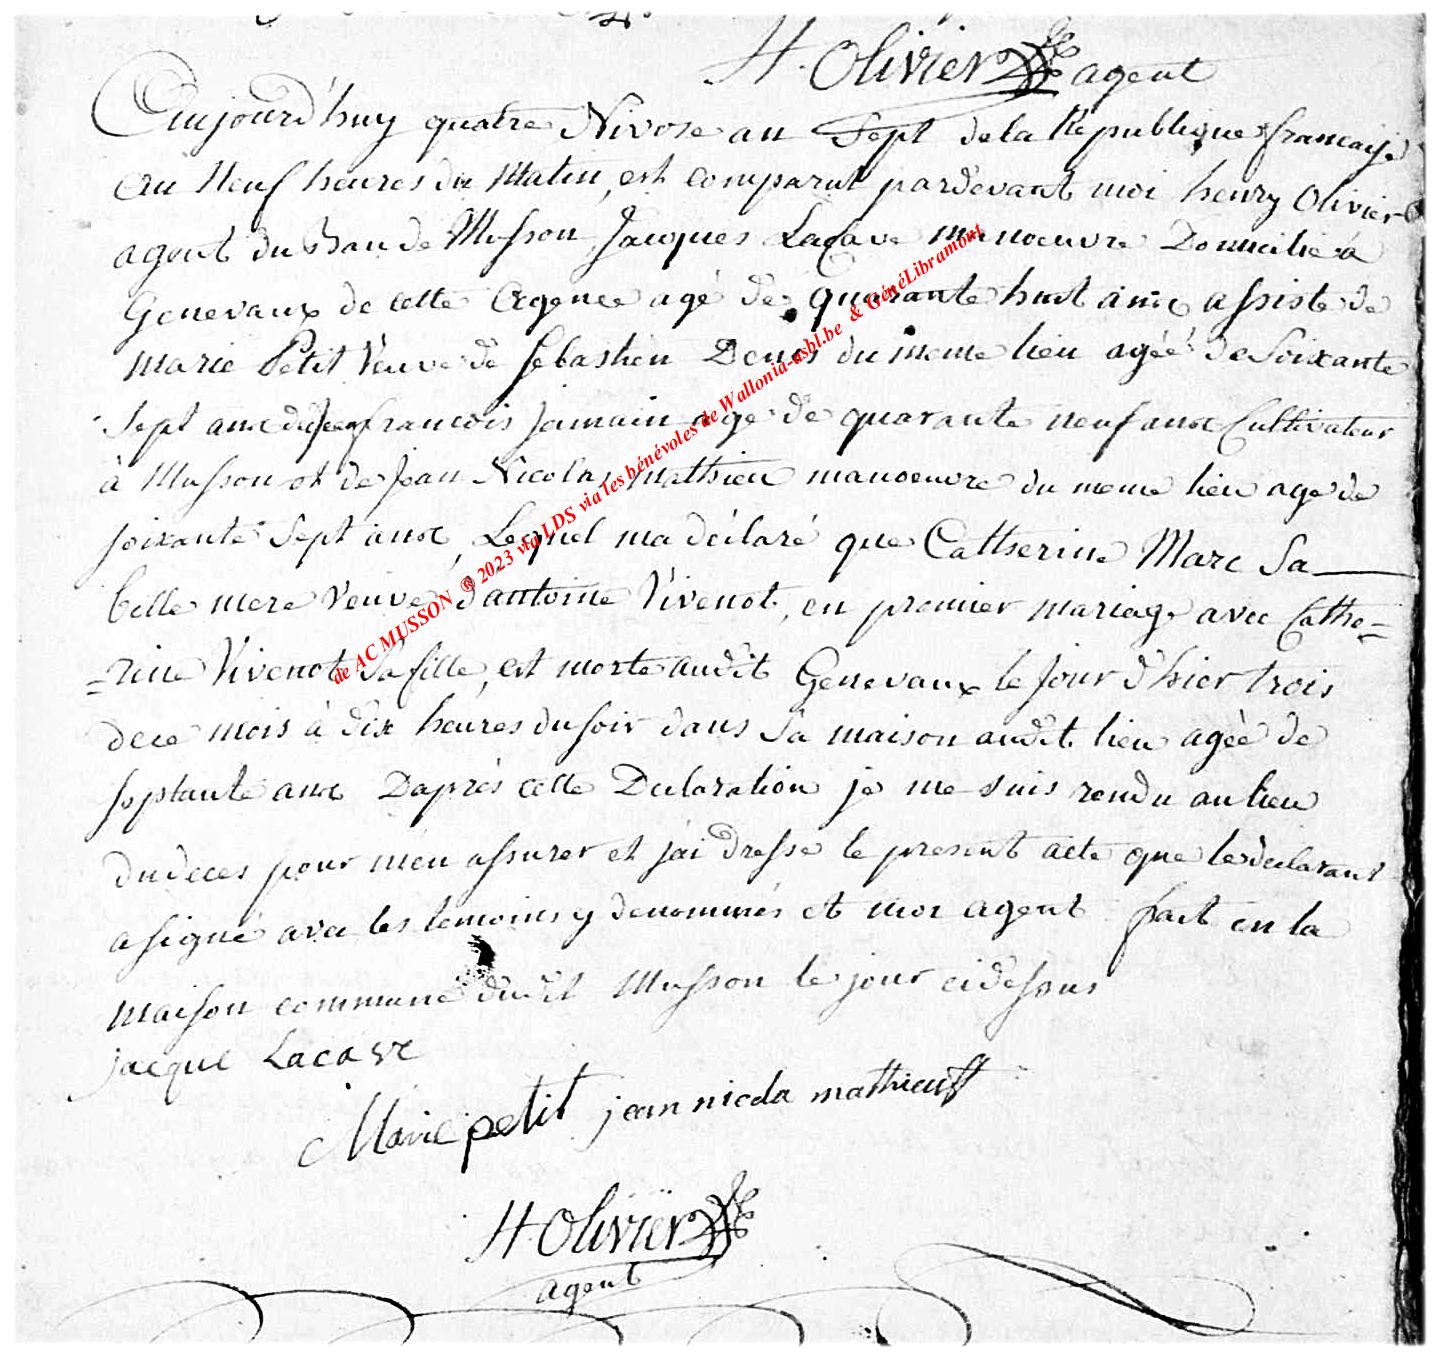 H. Olivier agent
Aujourd'huy quatre Nivose an Sept de la Republique francaise
au Neuf heures du Matin, est comparut pardevant moi henry Olivier
agent du Ban de Musson, Jacques Lacave manoeuvre Domicilié à
Genevaux de cette Agence agé de quarante huit ans assisté de
marie Petit Veuve de Sebastien Denis du meme lieu agéé de Soixante
Sept ans de francois Jamain agé de quarante neuf ans Cultivateur
à Musson et de Jean Nicolas mathieu manoeuvre du meme lieu agé de
soixante Sept ans, Lequel ma déclaré que Catherine Marc Sa
belle mere Veuve d'antoine Vivenot, en premier mariage avec Cathe=
=rine Vivenot Sa fille, est morte audit Genevaux le Jour d'hier trois
de ce mois à dix heures du soir dans Sa maison audit lieu agéé de
septante ans D'aprés cette Declaration je me suis rendu au lieu
du deces pour m'en assurer et j'ai dressé le present acte que le declarant
a signé avec les temoins y denommés et moi agent fait en la
maison commune dudit Musson le jour ci dessus
jacque Lacave
Marie petit jean nicola mathieu
H. Olivier
agent
de AC MUSSON ® 2023 via LDS via les bénévoles de Wallonia-asbl.be & GénéLibramont